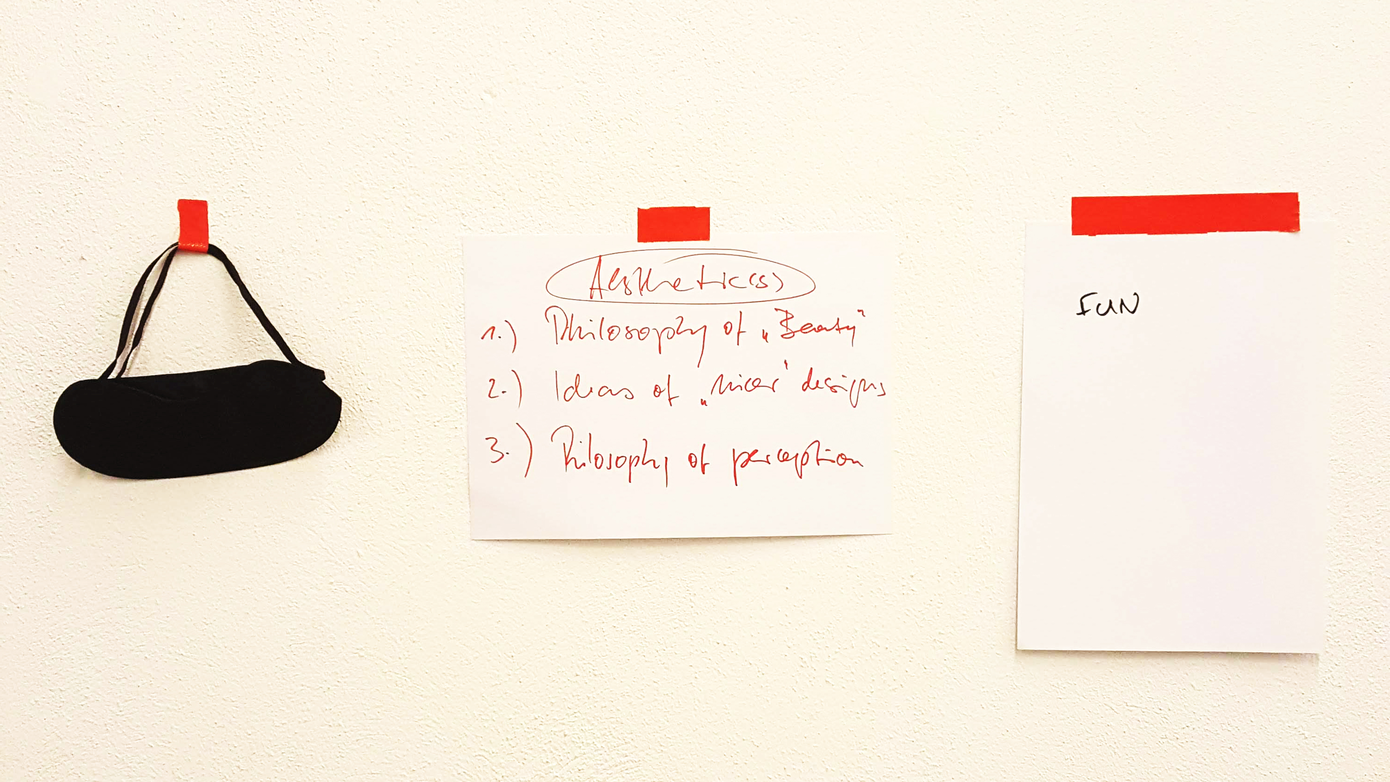 Aesthetic(s)
1.) Philosophy of „Beauty"
2.) Ideas of „nicer" designs
3.) Philosophy of perception
FUN